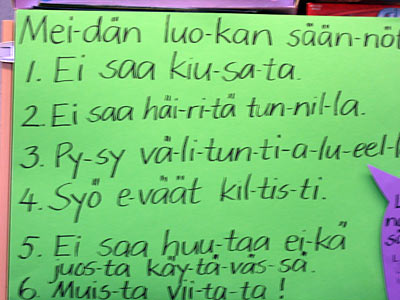 Mei-dän luo-kan sään-nöt
1. Ei saa kiu-sa-ta.
2. Ei saa häi-ri-tä tun-nil-la.
3. Py-sy vä-li-tun-ti-a-lu-eel-l
4. Syö e-väät kil-tis-ti.
5. Ei saa huu-taa ei-kä
juos-ta käy-tä-väs-sä.
6. Muis-ta vii-ta-ta!